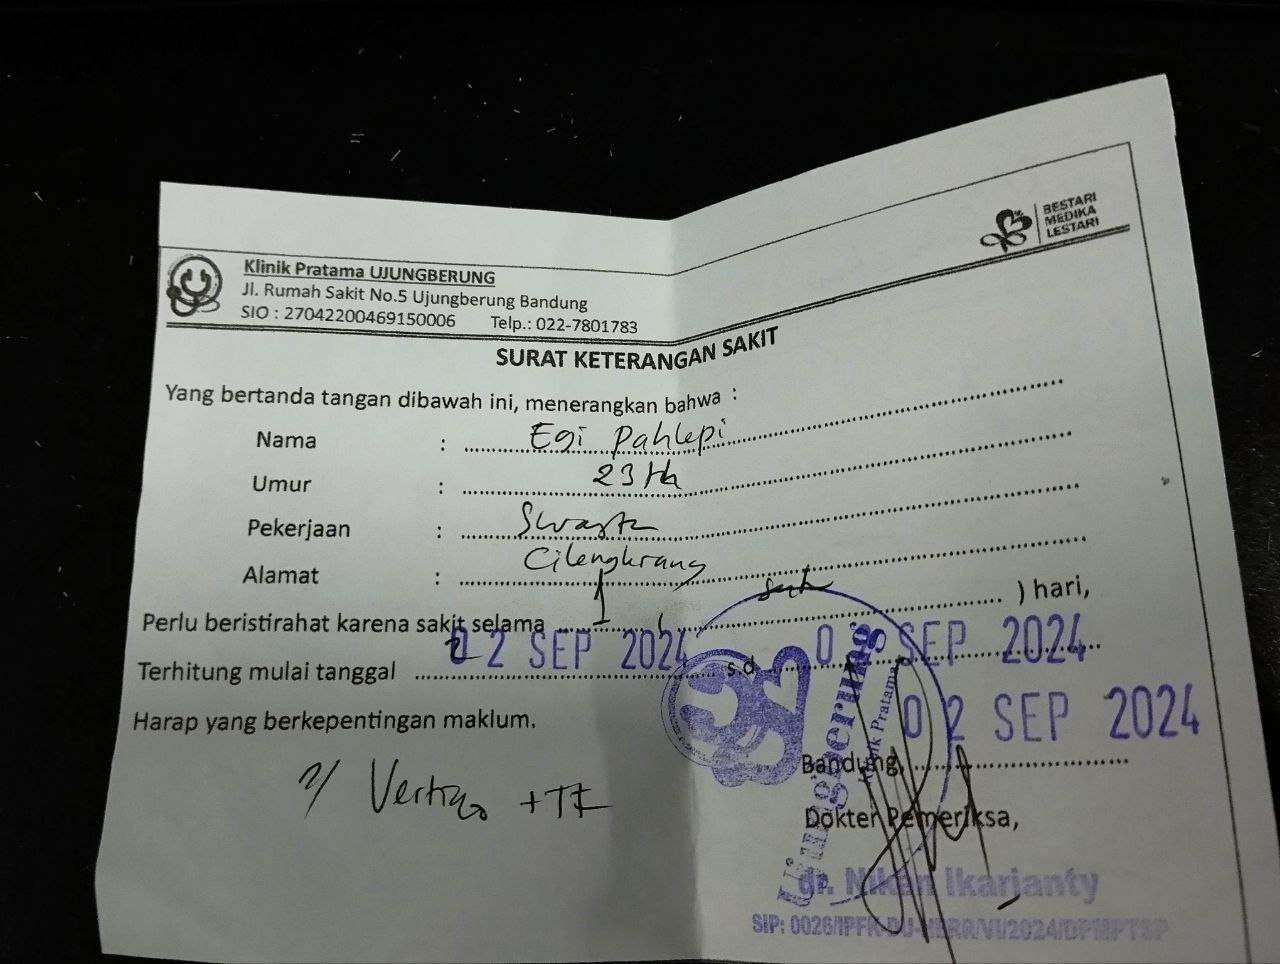 BESTARI
MEDIKA
LESTARI
Klinik Pratama UJUNGBERUNG
Jl. Rumah Sakit No.5 Ujungberung Bandung
SIO : 27042200469150006 Telp.: 022-7801783
SURAT KETERANGAN SAKIT
Yang bertanda tangan dibawah ini, menerangkan bahwa :
Nama : Egi Pahlepi
Umur : 23 th
Pekerjaan : Swasta
Alamat : Cilengkrang
Perlu beristirahat karena sakit selama 1 ( ) hari,
Terhitung mulai tanggal 02 SEP 2024 s.d 0 SEP 2024
Harap yang berkepentingan maklum.
Ujungberung
Klinik Pratama
Bandung, 02 SEP 2024
Vertigo
Dokter Pemeriksa,
dr. Niken Ikarianty